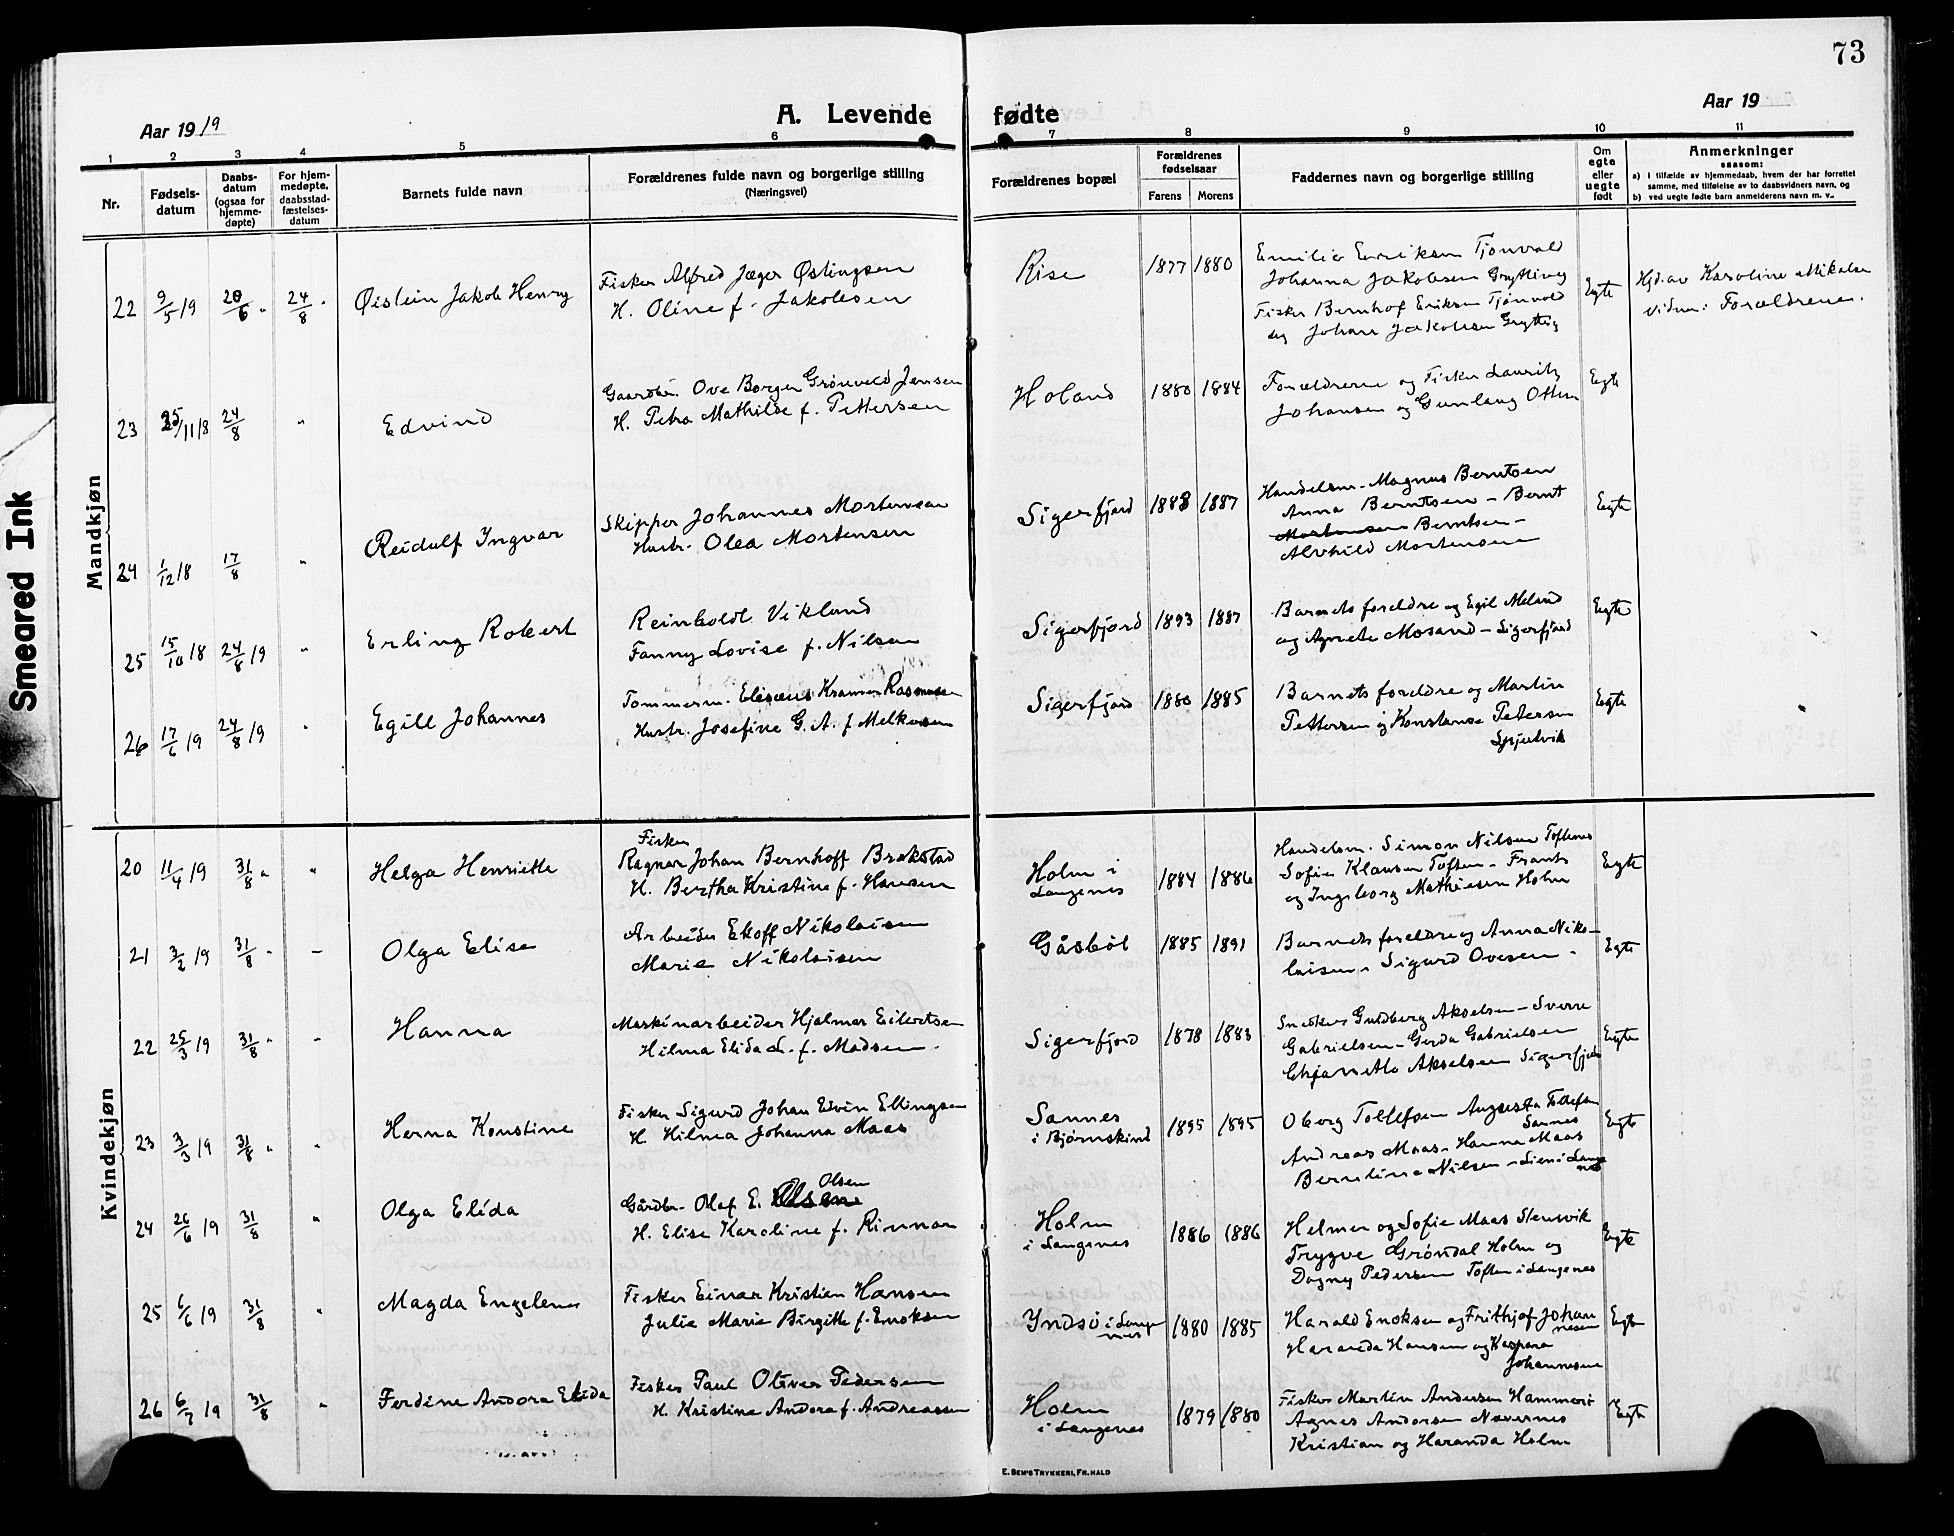 73
A. Levende fødte
Aar 1919
Aar 19
1 2 3 4 5 6 7 8 9 10 11
Nr.
Fødsels-
datum
Daabs-
datum
(ogsaa for
hjemme-
døpte)
For hjem-
medøpte,
daabsstad-
fæstelses-
datum
Barnets fulde navn
Forældrenes fulde navn og borgerlige stilling
(Næringsvei)
Forældrenes bopæl
Forældrenes
fødselsaar
Farens Morens
Faddernes navn og borgerlige stilling
Om
egte
eller
uegte
født
Anmerkninger
saasom:
a) i tilfælde av hjemmedaab, hvem der har forrettet
samme, med tilføielse av to daabsvidners navn, og
b) ved uegte fødte barn anmelderens navn m. v.
Smeared Ink
Mandkjøn
22 9/5 19 20/6 " 24/8 " Øistein Jakob Henry
Fisker Alfred Jæger Østingsen
H. Oline f. Jakobsen
Rise 1877 1880
Emilie Eriksen Tjønvold
Johanna Jakobsen Grytting
Fisker Bernhof Eriksen Tjønvold
og Johan Jakobsen Grytting
Egte
Hjd. av Karoline Mikalsen
Vidner: Forældrene.
23 25/11 18 24/8 " Edvind
Gaardbr. Ove Borgen Grønvold Jensen
H. Petra Mathilde f. Pettersen
Holand 1880 1884
Forældrene og Fisker Laurits
Johansen og Gunlaug Ottem
Egte
24 1/12 18 17/8 " Reidulf Ingvar
Skipper Johannes Mortensen
Hustr. Olea Mortensen
Sigerfjord 1883 1887
Handelsm. Magnus Berntsen
Anna Berntsen - Bernt
Mortensen Berntsen -
Alvhild Mortensen
Egte
25 15/10 18 24/8 19 " Erling Robert
Reinholdt Vikland
Fanny Lovise f. Nilsen
Sigerfjord 1893 1887
Barnets foreldre og Egil Meland
og Agnete Mosand - Sigerfjord
Egte
26 17/6 19 24/8 19 " Egill Johannes
Tommerm. Elisæus Kramer Rasmussen
Hustr. Josefine G. A. f. Melkersen
Sigerfjord 1880 1885
Barnets foreldre og Martin
Pettersen og Konstanse Petersen
Spjutvik
Egte
Kvindekjøn
20 11/4 19 31/8 " " Helga Henriette
Fisker
Ragnar Johan Bernhoff Brokstad
H. Bertha Kristine f. Hansen
Holm i
Langenes
1884 1886
Handelsm. Simon Nilsen Toftenes
Sofie Klausen Toften - Frants
og Ingeborg Mathiesen Holm
Egte
21 3/2 19 31/8 " - Olga Elise
Arbeider Ekoff Nikolaisen
Marie Nikolaisen
Gåsbøl 1885 1891
Barnets foreldre og Anna Niko-
laisen - Sigurd Ovesen -
Egte
22 25/3 19 31/8 " " Hanna
Maskinarbeider Hjalmar Eilertsen
Hilma Elida L. f. Madsen.
Sigerfjord 1878 1883
Snedker Guldberg Akselsen - Sverre
Gabrielsen - Gerda Gabrielsen
Akselsen Sigerfjord
Egte
23 3/3 19 31/8 " " Herna Konstine
Fisker Sigurd Johan Edvin Ellingsen
H. Hilma Johanna Maas
Sannes
i Bjørnskind
1895 1895
Oberg Tollefsen Augusta Tollefsen
Sannes
Andreas Maas - Hanna Maas
Berntine Nilsen - Lien i Lange
nes
Egte
24 26/6 19 31/8 " Olga Elida
Olsen
Gårdbr. Olaf E. Olsen
H. Elise Karoline f. Rinnan
Holm
i Langenes
1886 1886
Helmer og Sofie Maas Stensvik
Trygve Grøndal Holm og
Dagny Pedersen Toften i Langenes
Egte
25 6/6 19 31/8 " Magda Engelene
Fisker Einar Kristian Hansen
Julie Marie Birgitte f. Enoksen
Yndsø i Lange
nes
1880 1885
Harald Enoksen og Frithjof Johan
nesen
Haranda Hansen og Kaspara
Johannesen
Egte
26 6/7 19 31/8 " Ferdine Andora Elida
Fisker Paul Oliver Pedersen
H. Kristine Andora f. Andreassen
Holm
i Langenes
1879 1880
Fisker Martin Andersen Hammeri
Agnes Andersen Navernes
Kristian og Haranda Holm
Egte
E. SEM'S TRYKKERI, FR.HALD